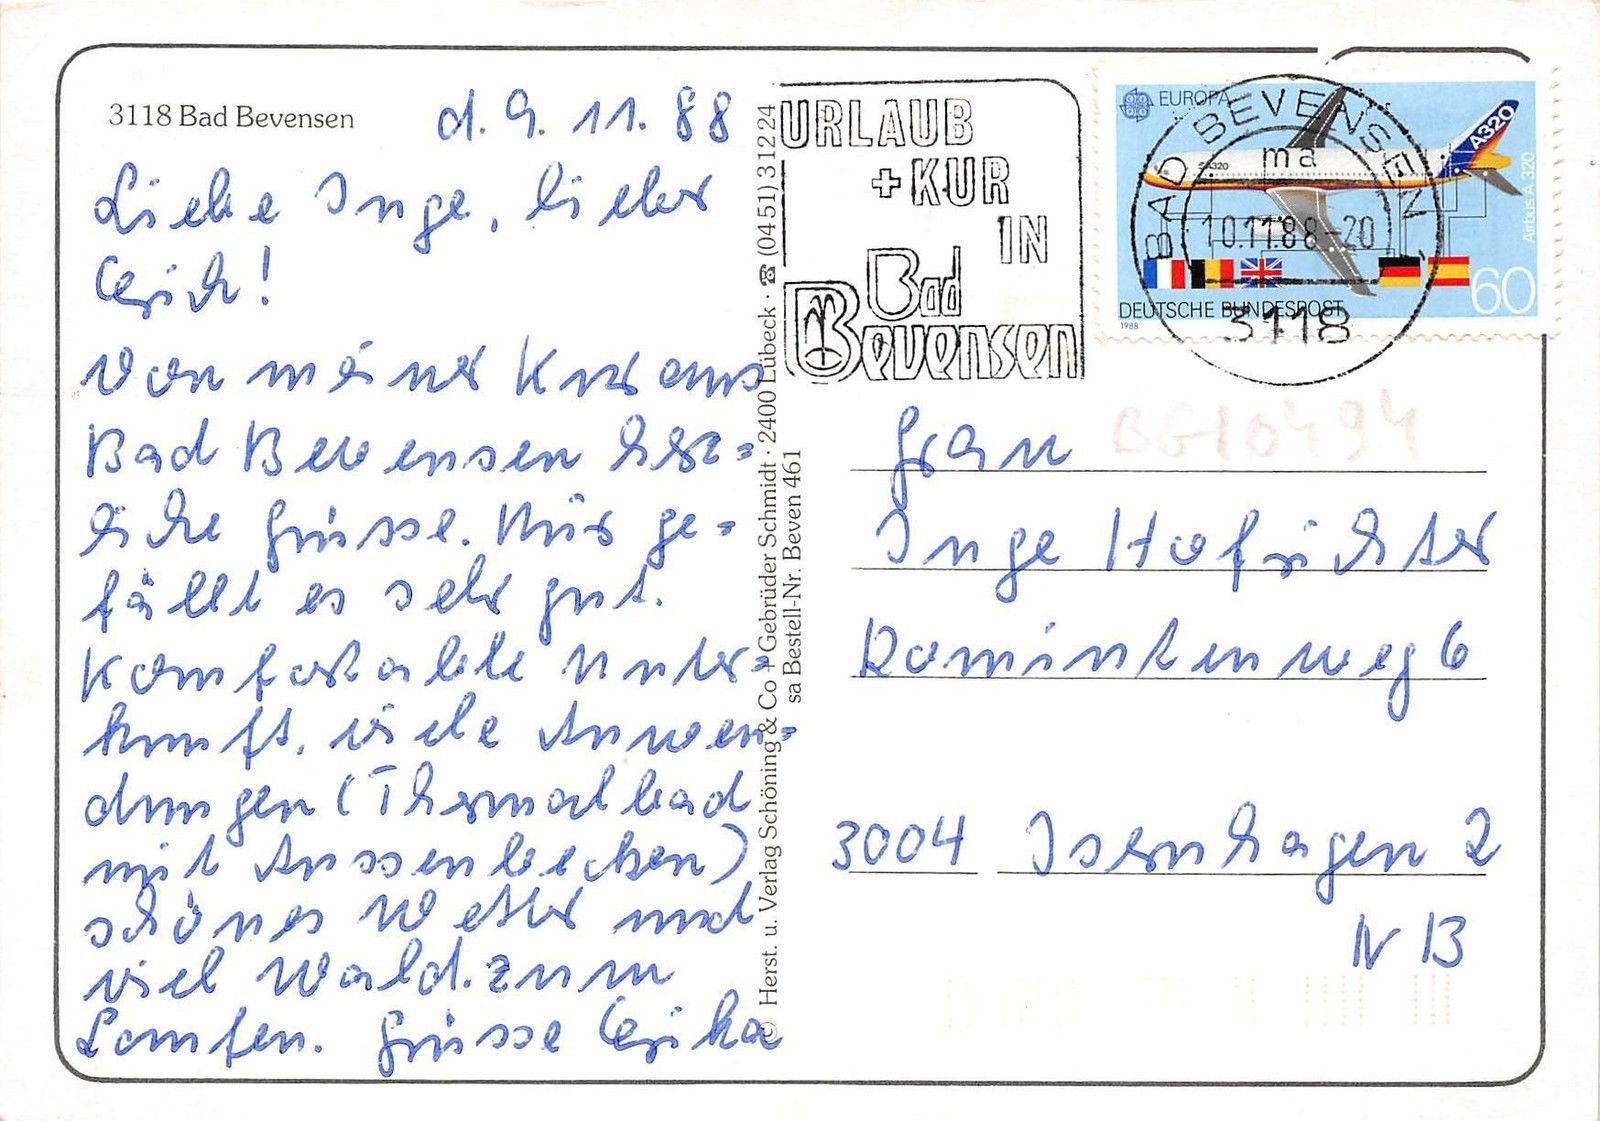 3118 Bad Bevensen
d. 9. 11. 88
Liebe Inge, lieber
Erich!
Von meiner Kur aus
Bad Bevensen herz=
liche Grüsse. Mir ge=
fällt es sehr gut.
Komfortable Unter=
kunft, viele Anwen=
dungen (Thermalbad
mit Aussenbecken)
schönes Wetter und
viel Wald. zum
Laufen. Grüsse Erika
© Herst. u. Verlag Schöning & Co + Gebrüder Schmidt · 2400 Lübeck · ☎ (0451) 31224
sa Bestell-Nr. Beven 461
URLAUB
+KUR
IN
Bad
Bevensen
EUROPA
A320
A320
Airbus A 320
60
DEUTSCHE BUNDESPOST
1988
BAD BEVENSEN 1
ma
10.11.88-20
3118
BG10494
Frau
Inge Hofrichter
Romintenweg 6
3004 Isernhagen 2
NB